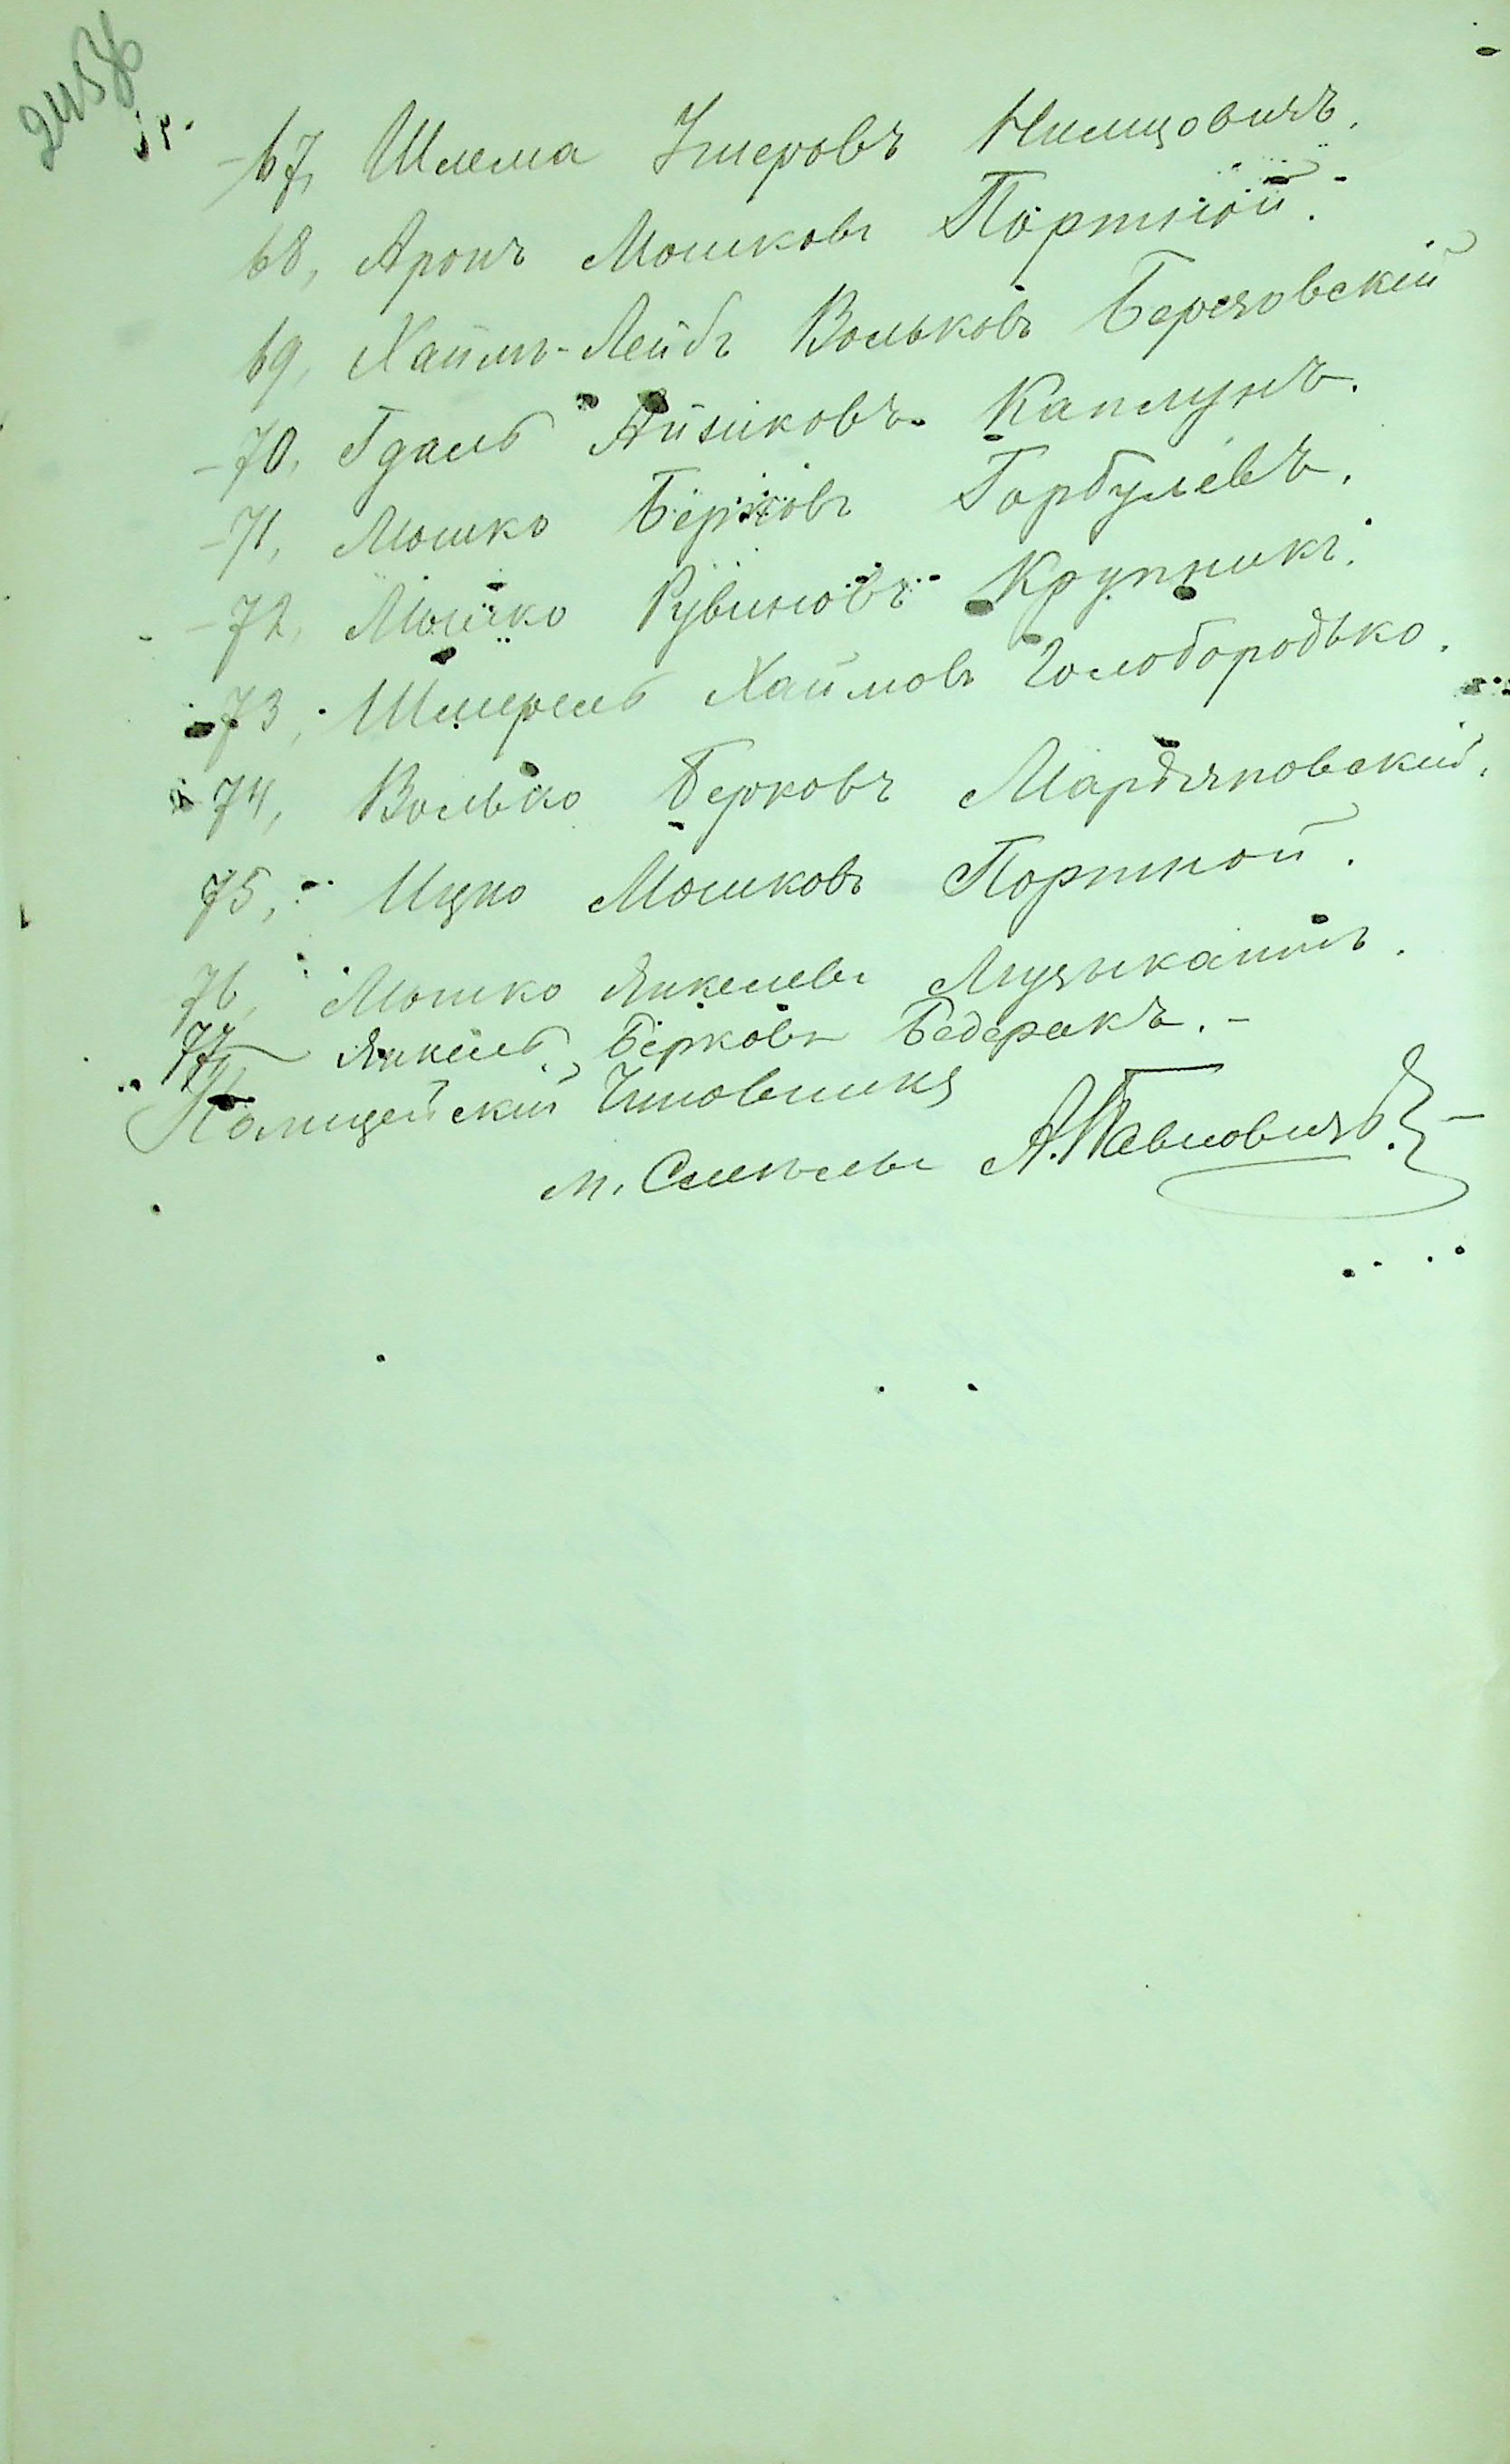 67, Шлема Нимцовичъ.
68, Аронъ Мошковъ Портной.
69, Хаимъ-Лейбъ Вольковъ Березовскій
70, Гдаль Айзиковъ Каплунъ.
71, Мошко Берковъ Горбулевъ.
72, Мошко Рувиновъ Крупникъ.
73, Шмерель Хаимовъ Голобородько.
74, Волько Берковъ
75, Ицко Мошковъ Портной.
76, Мошко Янкелевъ Музыкантъ.
77 Янкель Берковъ Бедеракъ.-
Полицейскій Чиновникъ
м. А. Павловичъ